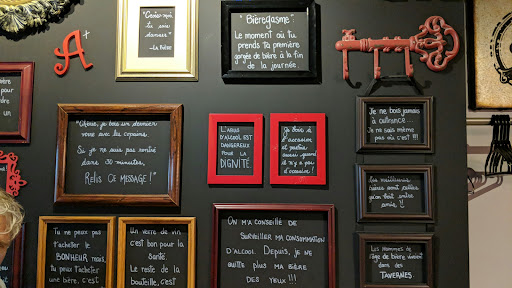 A+
"Bièregasme":
Le moment où tu
prends ta première
gorgée de bière à la
fin de la journée.
"Chérie, je bois un dernier
verre avec les copains.
Si je ne suis pas rentré
dans 30 minutes,
Relis CE MESSAGE!"
L'ABUS
D'ALCOOL EST
DANGEREUX
POUR LA
DIGNITÉ
Je bois à
l'occasion
et parfois
aussi quand
il n'y a pas
d'occasion!
Je ne bois jamais
à outrance...
Je ne sais même
pas où c'est !!!
Les meilleures
bières sont celles
qu'on boit entre
amis !!
Les Hommes de
l'âge de bière vivaient
dans des
TAVERNES.
Tu ne peux pas
t'acheter le
BONHEUR mais,
tu peux t'acheter
une bière, c'est
Un verre de vin
c'est bon pour la
Santé.
Le reste de la
bouteille, c'est
On m'a conseillé de
surveiller ma consommation
d'alcool. Depuis, je ne
quitte plus ma bière
des yeux !!!